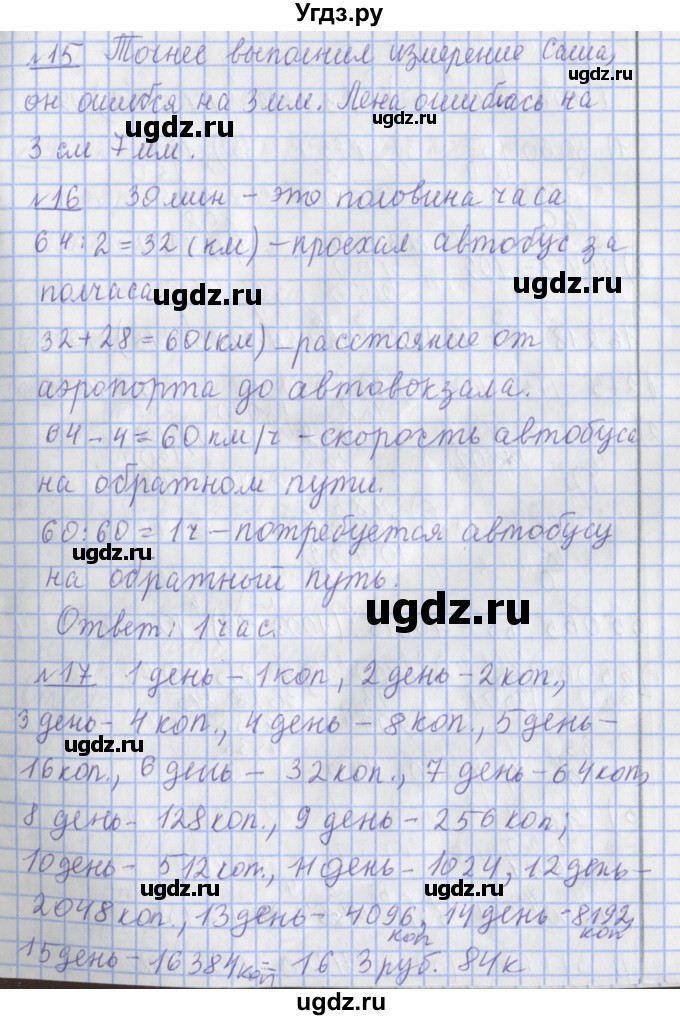 Угдз.ру
№15 Точнее выполнил измерение Саша,
он ошибся на 3 мм. Лена ошиблась на
ugdz.ru
ugdz.ru
3 см 7 мм.
№16 30 мин – это половина часа
64:2=32 (км) – проехал автобус за
ugdz.ru
полчаса
ugdz.ru
32+28=60(км) – расстояние от
аэропорта до автовокзала.
64-4=60 км/ч – скорость автобуса
на обратном пути.
60:60=1ч – потребуется автобусу
ugdz.ru
на обратный путь.
ugdz.ru
Ответ: 1 час.
№17 1 день – 1 коп, 2 день – 2 коп.,
3 день – 4 коп., 4 день – 8 коп., 5 день –
ugdz.ru
16 коп., 6 день – 32 коп., 7 день – 64 коп,
8 день – 128 коп., 9 день – 256 коп;
ugdz.ru
10 день – 512 коп., 11 день – 1024, 12 день –
ugdz.ru
2048 коп., 13 день – 4096, 14 день – 8192,
коп коп
15 день – 16384 коп = 16 3 руб. 84 к
ugdz.ru